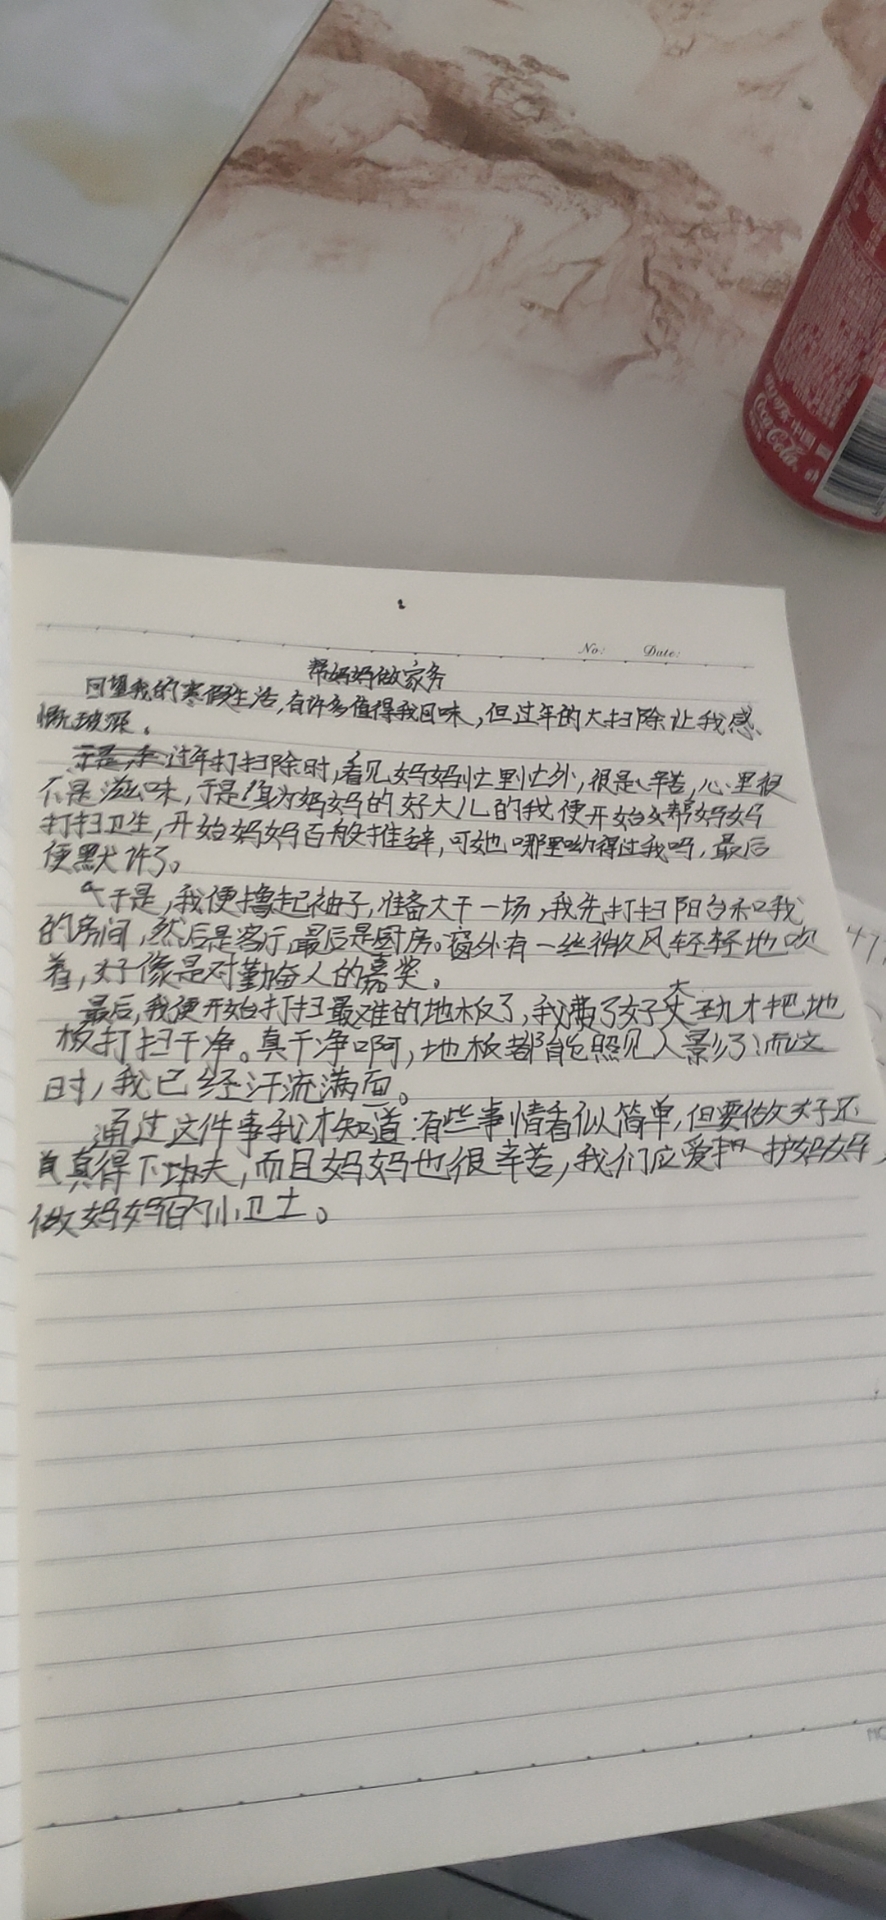 No: Date:
帮妈妈做家务
回望我的寒假生活,有许多值得我回味,但过年的大扫除让我感
慨颇深。
于是,去过年打扫除时,看见妈妈忙里忙外,很是辛苦,心里很
不是滋味,于是身为妈妈的好大儿的我便开始帮妈妈
打扫卫生,开始妈妈百般推辞,可她哪里呦得过我吗,最后
便默许了。
于是,我便撸起袖子,准备大干一场,我先打扫阳台和我
的房间,然后是客厅,最后是厨房。窗外有一丝微风轻轻地吹
着,好像是对勤奋人的嘉奖。
最后,我便开始打扫最难的地板了,我费了好大劲才把地
板打扫干净。真干净啊,地板都能照见人影了!而这
时,我已经汗流满面。
通过这件事我才知道:有些事情看似简单,但要做好还
真得下功夫,而且妈妈也很辛苦,我们应爱护妈妈,
做妈妈的小卫士。
Coca-Cola
中国
47
MO